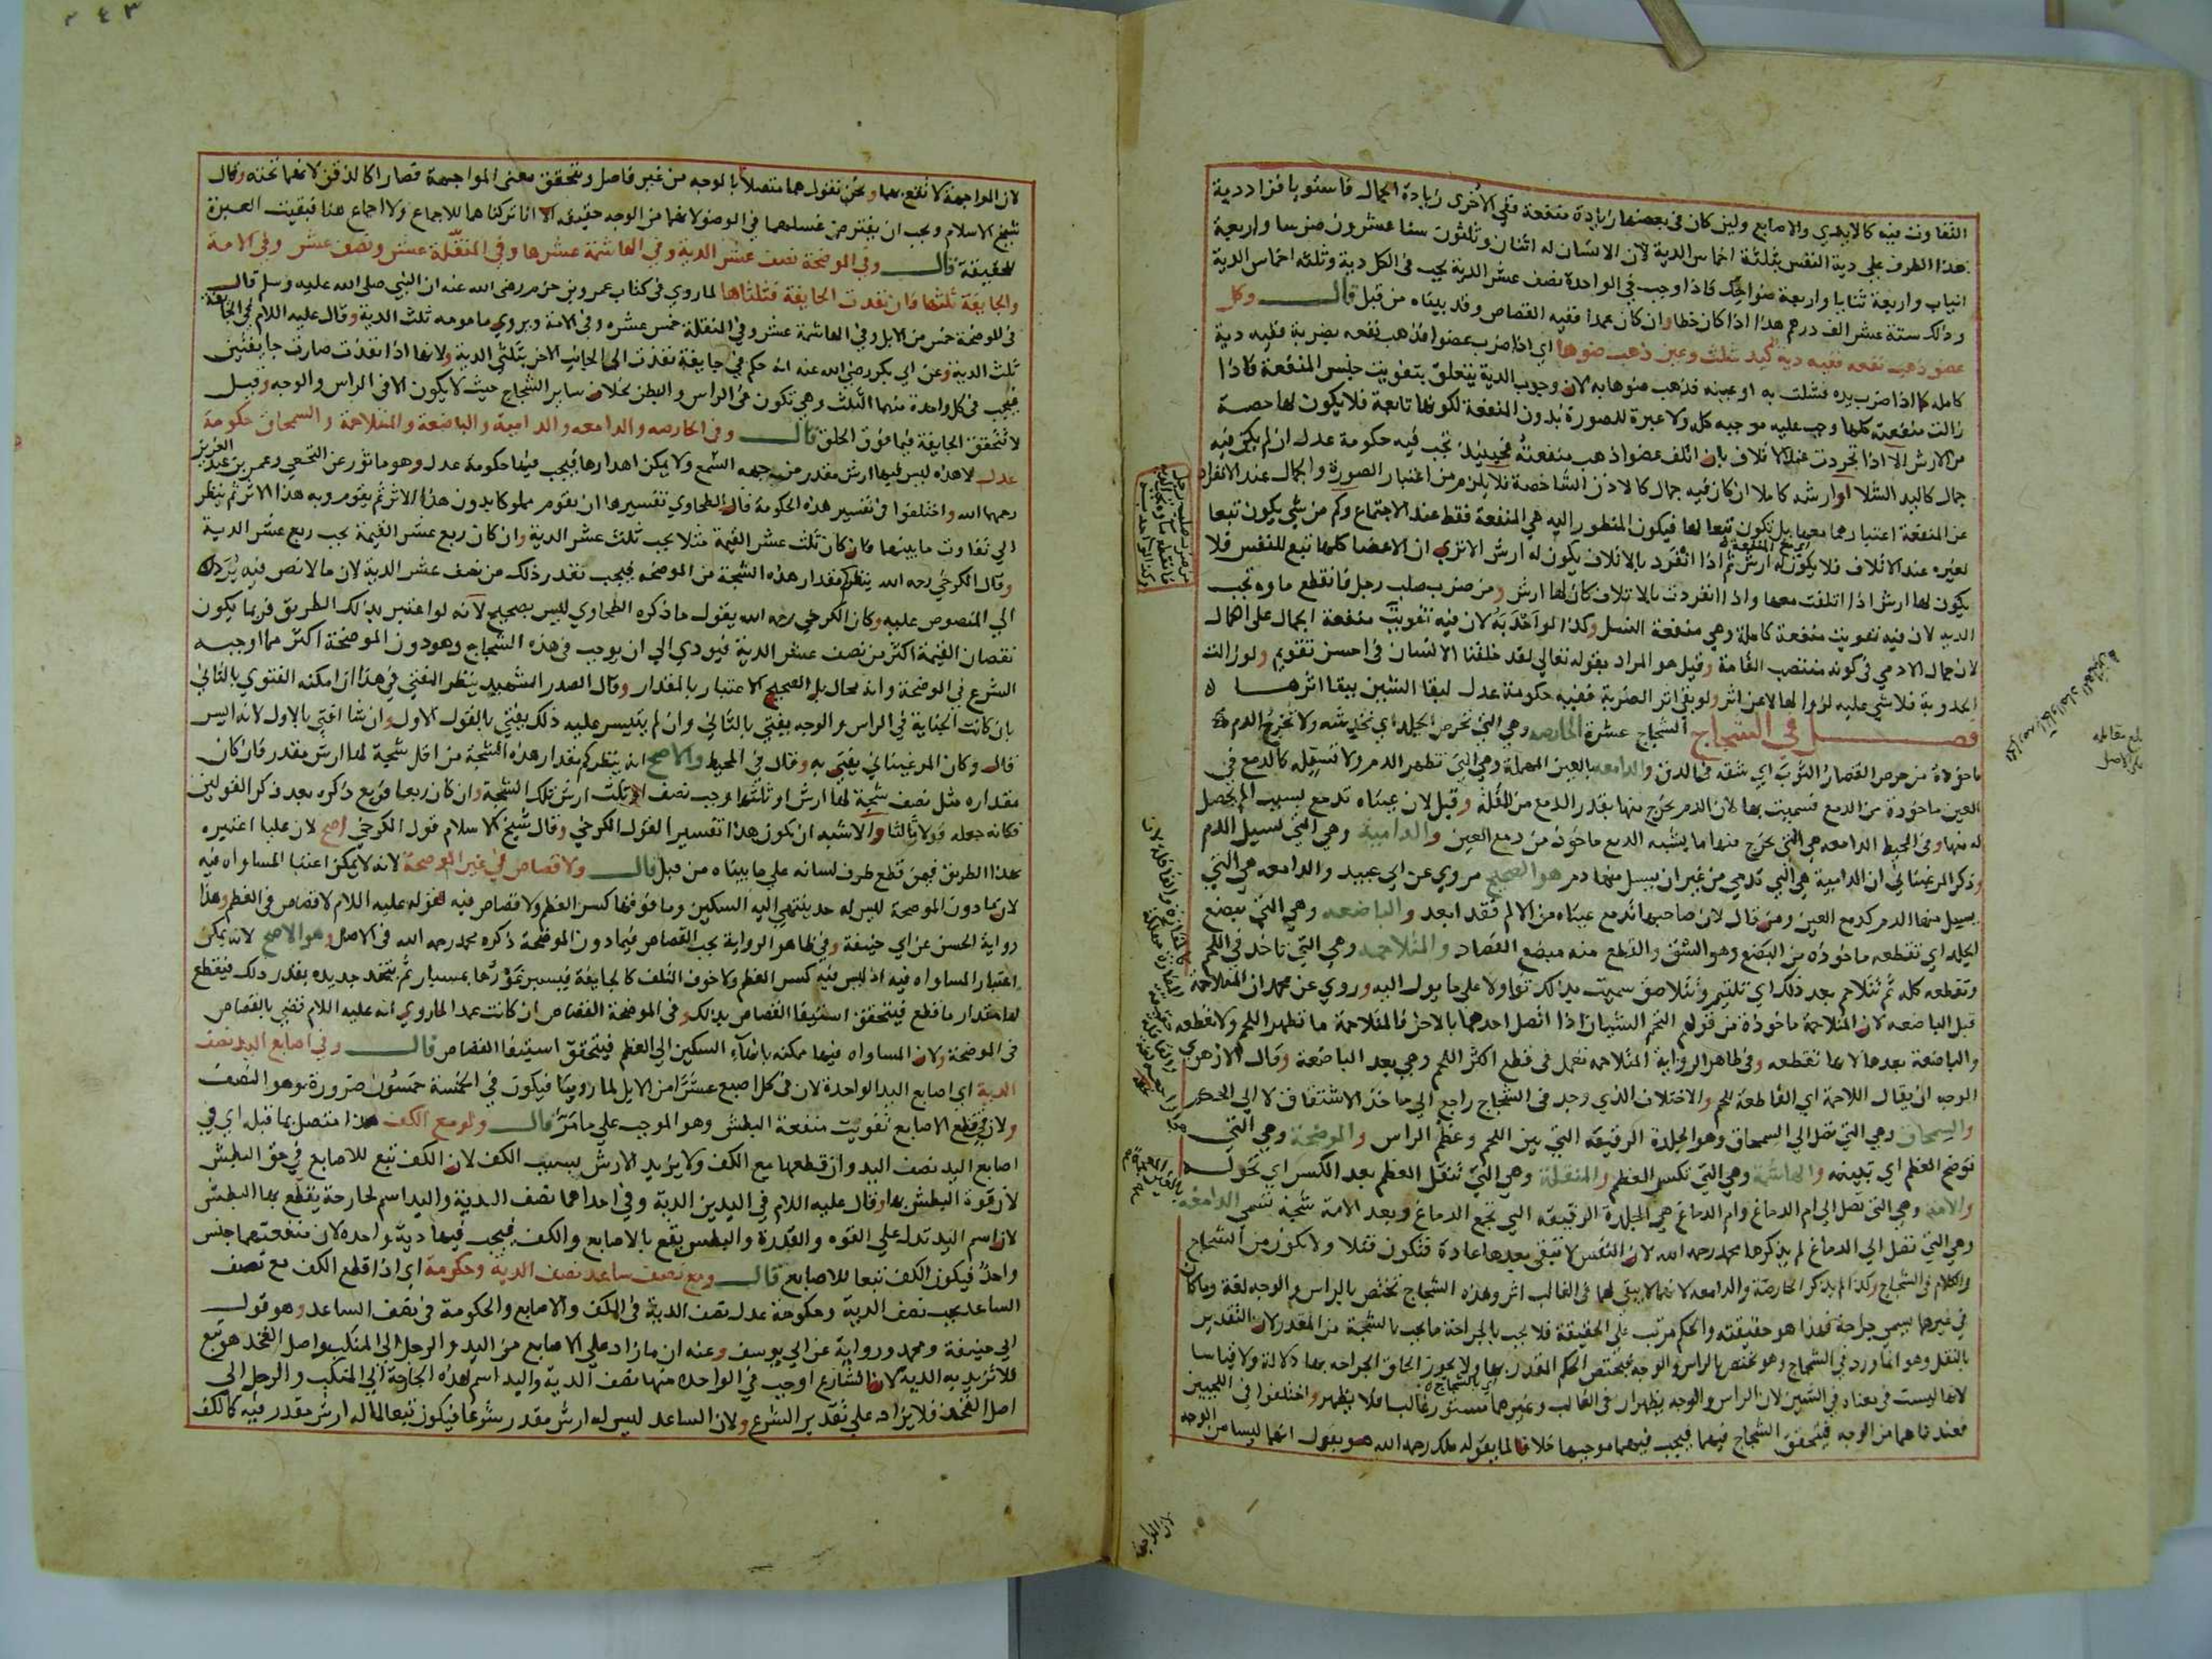 التفاوت فيه كالايدي والاصابع ولين كان في بعضها زيادة منفعة ففي الاخرى زيادة الجمال فاستويا فزاد دية
هذا الطرف على دية النفس بثلثة اخماس الدية لان الانسان له اثنان وثلثون سنا عشرون ضرسا واربعة
انياب واربعة ثنايا واربعة ضواحك فاذا وجب في الواحدة نصف عشر الدية يجب في الكل دية وثلثه اخماس الدية
وذلك ستة عشر الف درهم هذا اذا كان خطا وان كان عمدا ففيه القصاص وقد بيناه من قبل قال وكل
عضو ذهب نفعه ففيه دية كيد شلت وعين ذهب ضوها اي اذا ضرب عضوا فذهب نفعه بضربه ففيه دية
كامله كما اذا ضرب يده فشلت به او عينه فذهب ضوها به لان وجوب الدية يتعلق بتفويت جنس المنفعة فاذا
زالت منفعته كلها وجب عليه موجبه كله ولا عبرة للصورة بدون المنفعة لكونها تابعة فلا يكون لها حصة
من الارش الا اذا تجردت عند الاتلاف بان اتلف عضوا ذهب منفعته فحينئذ تجب فيه حكومة عدل ان لم يكن فيه
جمال كاليد الشلا او ارشه كاملا ان كان فيه جمال كالاذن الشاخصة فلا يلزم من اعتبار الصورة والجمال عند الانفراد
عن المنفعة اعتبارهما معها بل تكون تبعا لها فيكون المنظور اليه هي المنفعة فقط عند الاجتماع وكم من شي يكون تبعا
لغيره عند الاتلاف فلا يكون له ارش ثم اذا انفرد بالاتلاف يكون له ارش الا ترى ان الاعضا كلها تبع للنفس فلا
يكون لها ارش اذا اتلفت معها واذا انفردت بالاتلاف كان لها ارش ومن ضرب صلب رجل فانقطع ماوه تجب
الديه لان فيه تفويت منفعة كاملة وهي منفعة النسل وكذا لو احدبه لان فيه تفويت منفعة الجمال على الكمال
لان جمال الادمي في كونه منتصب القامة وقيل هو المراد بقوله تعالى لقد خلقنا الانسان في احسن تقويم ولو زالت
الحدوبة فلا شي عليه لزوالها لا عن اثر ولو بقي اثر الضربة ففيه حكومة عدل لبقا الشين ببقا اثرها
فصل في الشجاج الشجاج عشرة الحارصه وهي التي تحرص الجلد اي تخدشه ولا تخرج الدم
ماخوذة من حرص القصار الثوب اي شقه في الدق والدامعه بالعين المهملة وهي التي تظهر الدم ولا تسيله كالدمع في
العين ماخوذة من الدمع فسميت بها لان الدم يخرج منها بقدر الدمع من المقلة وقيل لان عيناه تدمع بسبب الم يحصل
له منها وفي المحيط الدامعه هي التي يخرج منها ما يشبه الدمع ماخوذ من دمع العين والدامية وهي التي تسيل الدم
وذكر المرغيناني ان الدامية هي التي تدمي من غير ان يسيل منها دم هو الصحيح مروي عن ابي عبيد والدامعه هي التي
يسيل منها الدم كدمع العين ومن قال لان صاحبها تدمع عيناه من الالم فقد ابعد والباضعه وهي التي تبضع
الجلد اي تقطعه ماخوذه من البضع وهو الشق والقطع منه مبضع الفصاد والمتلاحمه وهي التي تاخذ في اللحم
وتقطعه كله ثم تتلاحم بعد ذلك اي تلتيم وتتلاصق سميت بذلك تفاولا على ما يول اليه وروي عن محمد ان المتلاحمة
قبل الباضعه لان المتلاحمة ماخوذة من قولهم التحم الشيان اذا اتصل احدهما بالاخر فالمتلاحمة ما تظهر اللحم ولا تقطعه
والباضعة بعدها لانها تقطعه وفي ظاهر الرواية المتلاحمة تعمل في قطع اكثر اللحم وهي بعد الباضعة وقال الازهري
الوجه ان يقال اللاحمة اي القاطعة للحم والاختلاف الذي وجد في الشجاج راجع الى ماخذ الاشتقاق لا الى الحكم
والسمحاق وهي التي تصل الى السمحاق وهو الجلدة الرقيقه التي بين اللحم وعظم الراس والموضحة وهي التي
توضح العظم اي تبينه والهاشمة وهي التي تكسر العظم والمنقلة وهي التي تنقل العظم بعد الكسر اي تحوله
والامة وهي التي تصل الى ام الدماغ وام الدماغ هي الجلدة الرقيقه التي تجمع الدماغ وبعد الامة شجة تسمى الدامغة
وهي التي تصل الى الدماغ لم يذكرها محمد رحمه الله لان النفس لا تبقى بعدها عادة فتكون قتلا ولا تكون من الشجاج
والكلام في الشجاج وكذا لم يذكر الحارصة والدامعه لانهما لا يبقى لهما في الغالب اثر وهذه الشجاج تختص بالراس والوجه لغة وما كان
في غيرهما يسمى جراحة فهذا هو حقيقته والحكم مرتب على الحقيقة فلا يجب بالجراحة ما يجب بالشجة من المقدر لان التقدير
بالنقل وهو انما ورد في الشجاج وهو تختص بالراس والوجه فيختص الحكم المقدر بها ولا يجوز الحاق الجراحه بها دلالة ولا قياسا
لانها ليست في معناه في الشين لان الراس والوجه يظهران في الغالب وغيرهما مستور غالبا فلا يظهر واختلفوا في اللحيين
فعندنا هما من الوجه فيتحقق الشجاج فيهما فيجب فيهما موجبها خلافا لما يقوله ملك رحمه الله هو يقول انهما ليسا من الوجه
بلغ مقابله
على الاصل
لان المواجهة
٣٤٣
لان المواجهة لا تقع بهما ونحن نقول هما متصلا بالوجه من غير فاصل ويتحقق معنى المواجهة فصارا كالذقن لانهما تحته وقال
شيخ الاسلام ويجب ان يفترض غسلهما في الوضو لانهما من الوجه حقيقه الا انا تركناها للاجماع ولا اجماع هنا فبقيت العبرة
للحقيقة قال وفي الموضحة نصف عشر الدية وفي الهاشمة عشرها وفي المنقلة عشر ونصف عشر وفي الامة
والجايفة ثلثها فان نفدت الجايفة فثلثاها لما روي في كتاب عمرو بن حزم رضي الله عنه ان النبي صلى الله عليه وسلم قال
في الموضحة خمس من الابل وفي الهاشمة عشر وفي المنقلة خمس عشره وفي الامة ويروي مامومه ثلث الدية وقال عليه اللام في الجايفة
ثلث الدية وعن ابي بكر رضي الله عنه انه حكم في جايفة نفذت الى الجانب الاخر بثلثي الدية ولانها اذا نفذت صارت جايفتين
فيجب في كل واحدة منهما الثلث وهي تكون في الراس والبطن بخلاف ساير الشجاج حيث لا يكون الا في الراس والوجه وقيل
لا تتحقق الجايفة فيما فوق الحلق قال وفي الحارصه والدامعه والدامية والباضعة والمتلاحمة والسمحاق حكومة
عدل لان هذه ليس فيها ارش مقدر من جهه السمع ولا يمكن اهدارها فيجب فيها حكومة عدل وهو ماثور عن النخعي وعمر بن عبد العزيز
رحمهما الله واختلفوا في تفسير هذه الحكومة قال الطحاوي تفسيرها ان يقوم مملوكا بدون هذا الاثر ثم يقوم وبه هذا الاثر ثم ينظر
الى تفاوت ما بينهما فان كان ثلث عشر القيمة مثلا يجب ثلث عشر الدية وان كان ربع عشر القيمة يجب ربع عشر الدية
وقال الكرخي رحمه الله ينظر كم مقدار هذه الشجة من الموضحه فيجب بقدر ذلك من نصف عشر الدية لان ما لا نص فيه يرد
الى المنصوص عليه وكان الكرخي رحمه الله يقول ما ذكره الطحاوي ليس بصحيح لانه لو اعتبر بذلك الطريق فربما يكون
نقصان القيمة اكثر من نصف عشر الدية فيودي الى ان يوجب في هذه الشجاج وهو دون الموضحة اكثر مما اوجبه
الشرع في الموضحة وانه محال بل الصحيح الاعتبار بالمقدار وقال الصدر الشهيد ينظر المفتي في هذا ان امكنه الفتوي بالثاني
بان كانت الجناية في الراس والوجه يفتي بالثاني وان لم يتيسر عليه ذلك يفتي بالقول الاول وان شا افتى بالاول لانه ايسر
قال وكان المرغيناني يفتي به وقال في المحيط والاصح انه ينظر كم مقدار هذه الشجة من اقل شجة لها ارش مقدر فان كان
مقداره مثل نصف شجة لها ارش او ثلثها وجب نصف او ثلث ارش تلك الشجة وان كان ربعا فربع ذكره بعد ذكر القولين
فكانه جعله قولا ثالثا والاشبه ان يكون هذا تفسيرا لقول الكرخي وقال شيخ الاسلام قول الكرخي اصح لان عليا اعتبره
بهذا الطريق فيمن قطع طرف لسانه على ما بيناه من قبل قال ولا قصاص في غير الموضحة لانه لا يمكن اعتبا المساواه فيه
لان ما دون الموضحة ليس له حد ينتهي اليه السكين وما فوقها كسر العظم ولا قصاص فيه لقوله عليه اللام لا قصاص في العظم وهذا
رواية الحسن عن ابي حنيفة وفي ظاهر الرواية يجب القصاص فيما دون الموضحة ذكره محمد رحمه الله في الاصل وهو الاصح لانه يمكن
اعتبار المساواه فيه اذ ليس فيه كسر العظم ولا خوف التلف كالجايفة فيسبر غورها بمسبار ثم يتخذ حديده بقدر ذلك فيقطع
بها مقدار ما قطع فيتحقق استيفا القصاص بذلك وفي الموضحة القصاص ان كانت عمدا لما روي انه عليه اللام قضى بالقصاص
في الموضحة ولان المساواه فيها ممكنه بانهاء السكين الى العظم فيتحقق استيفا القصاص قال وفي اصابع اليد نصف
الدية اي اصابع اليد الواحدة لان في كل اصبع عشرا من الابل لما روينا فيكون في الخمسة خمسون ضرورة وهو النصف
ولان في قطع الاصابع تفويت منفعة البطش وهو الموجب على ما مر قال ولو مع الكف هذا متصل بما قبله اي في
اصابع اليد نصف اليد وان قطعها مع الكف ولا يزيد الارش بسبب الكف لان الكف تبع للاصابع في حق البطش
لان قوة البطش بها وقال عليه اللام في اليدين الدية وفي احداهما نصف الدية واليد اسم لجارحة يقطع بها البطش
لان اسم اليد تدل على القوه والقدرة والبطش يقع بالاصابع والكف فيجب فيها دية واحده لان منفعتهما جنس
واحد فيكون الكف تبعا للاصابع قال ومع نصف ساعد نصف الدية وحكومة اي اذا قطع الكف مع نصف
الساعد يجب نصف الدية وحكومة عدل نصف الدية في الكف والاصابع والحكومة في نصف الساعد وهو قول
ابي حنيفة ومحمد ورواية عن ابي يوسف وعنه ان ما زاد على الاصابع من اليد والرجل الى المنكب واصل الفخذ هو تبع
فلا تزيد به الدية لان الشارع اوجب في الواحده منهما نصف الدية واليد اسم لهذه الجارحة الى المنكب والرجل الى
اصل الفخذ فلا يزاد على تقدير الشرع ولان الساعد ليس له ارش مقدر شرعا فيكون تبعا لما له ارش مقدر فيه كالكف